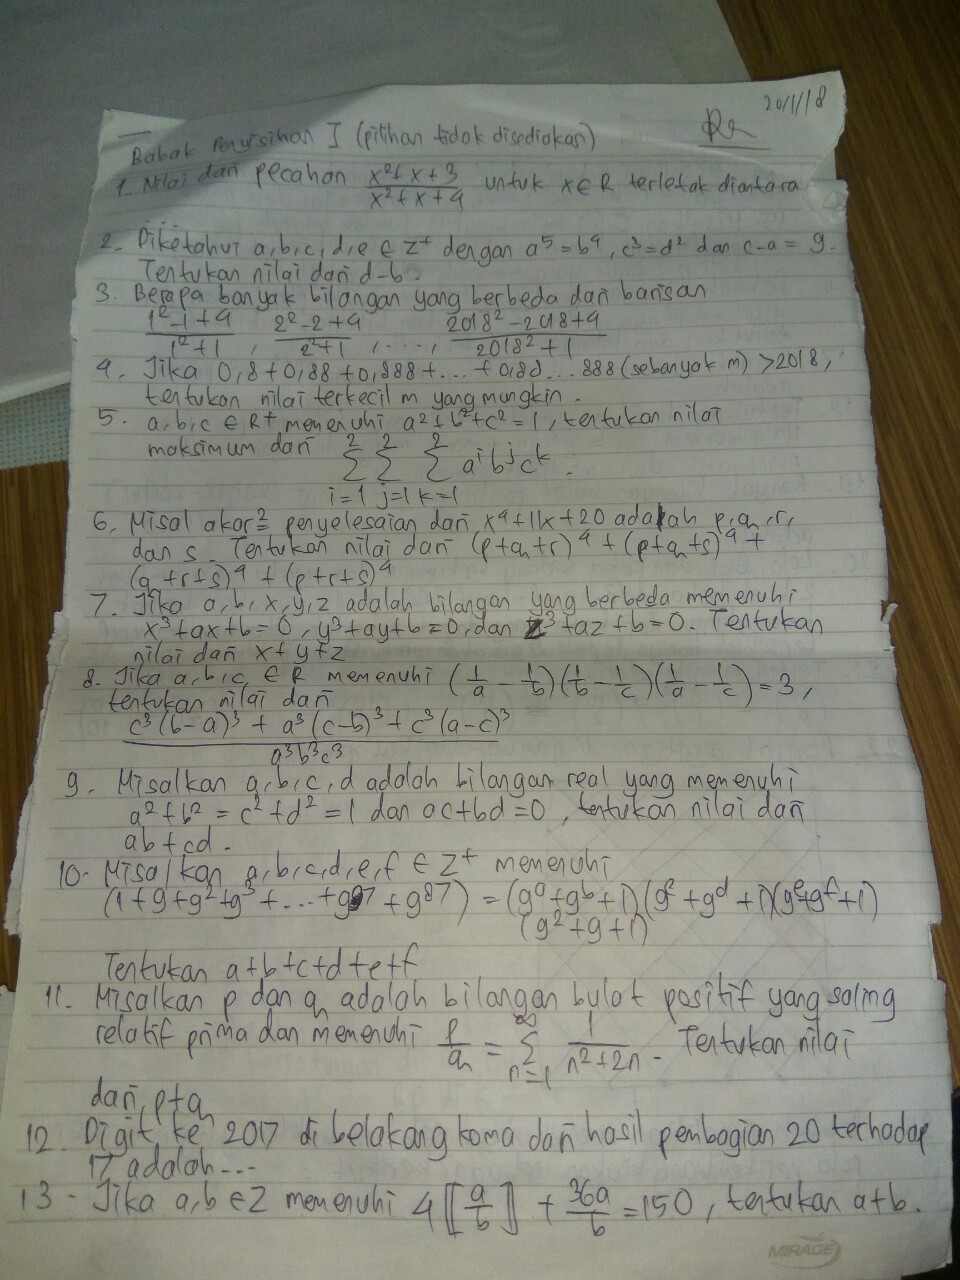 20/1/18
Babak Penyisihan I (pilihan tidak disediakan)
1. Nilai dari pecahan (x²+x+3)/(x²+x+4) untuk x∈R terletak diantara
2. Diketahui a,b,c,d,e ∈ Z⁺ dengan a⁵=b⁴, c³=d² dan c-a = 9.
Tentukan nilai dari d-b.
3. Berapa banyak bilangan yang berbeda dari barisan
(1²-1+4)/(1²+1), (2²-2+4)/(2²+1), ...., (2018²-2018+4)/(2018²+1)
4. Jika 0,8+0,88+0,888+...+0,88...888 (sebanyak m) >2018,
tentukan nilai terkecil m yang mungkin.
5. a,b,c ∈ R⁺ memenuhi a²+b²+c²=1, tentukan nilai
maksimum dari ∑_{i=1}^{2} ∑_{j=1}^{2} ∑_{k=1}^{2} aⁱbʲcᵏ.
6. Misal akar² penyelesaian dari x⁴+11x+20 adalah p,q,r,
dan s. Tentukan nilai dari (p+q+r)⁴ + (p+q+s)⁴ +
(q+r+s)⁴ + (p+r+s)⁴
7. Jika a,b,x,y,z adalah bilangan yang berbeda memenuhi
x³+ax+b=0, y³+ay+b=0, dan z³+az+b=0. Tentukan
nilai dari x+y+z
8. Jika a,b,c, ∈ R memenuhi (1/a - 1/b)(1/b - 1/c)(1/a - 1/c) = 3,
tentukan nilai dari
(c³(b-a)³ + a³(c-b)³ + c³(a-c)³)/(a³b³c³)
9. Misalkan a,b,c,d adalah bilangan real yang memenuhi
a²+b² = c²+d² = 1 dan ac+bd=0, tentukan nilai dari
ab+cd.
10. Misalkan a,b,c,d,e,f ∈ Z⁺ memenuhi
(1+g+g²+g³+...+g⁹⁷+g⁸⁷) = (gᵃ+gᵇ+1)(gᶜ+gᵈ+1)(gᵉ+gᶠ+1)
(g²+g+1)
Tentukan a+b+c+d+e+f
11. Misalkan p dan q adalah bilangan bulat positif yang saling
relatif prima dan memenuhi p/q = ∑_{n=1}^{∞} 1/(n²+2n). Tentukan nilai
dari p+q
12. Digit ke 2017 di belakang koma dari hasil pembagian 20 terhadap
17 adalah...
13. Jika a,b ∈ Z memenuhi 4⟦a/b⟧ + 36a/b = 150, tentukan a+b.
MIRAGE